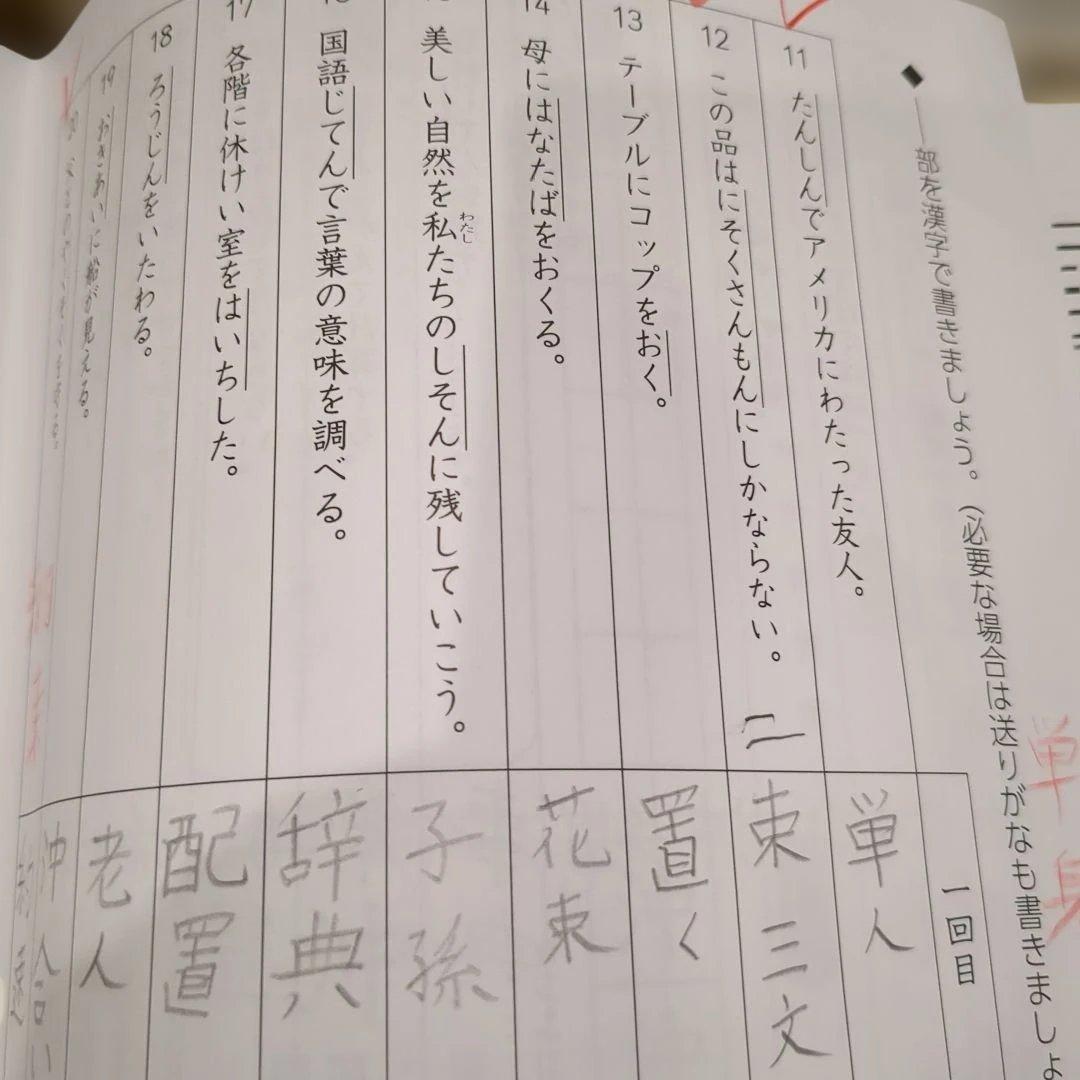 ◆――部を漢字で書きましょう。（必要な場合は送りがなも書きましょ
一回目
11 たんしんでアメリカにわたった友人。
単人
単身
12 この品はにそくさんもんにしかならない。
二束三文
13 テーブルにコップをおく。
置く
14 母にはなたばをおくる。
花束
美しい自然を私たちのしそんに残していこう。
わたし
子孫
国語じてんで言葉の意味を調べる。
辞典
17 各階に休けい室をはいちした。
配置
18 ろうじんをいたわる。
老人
19 おきあいに船が見える。
沖合い